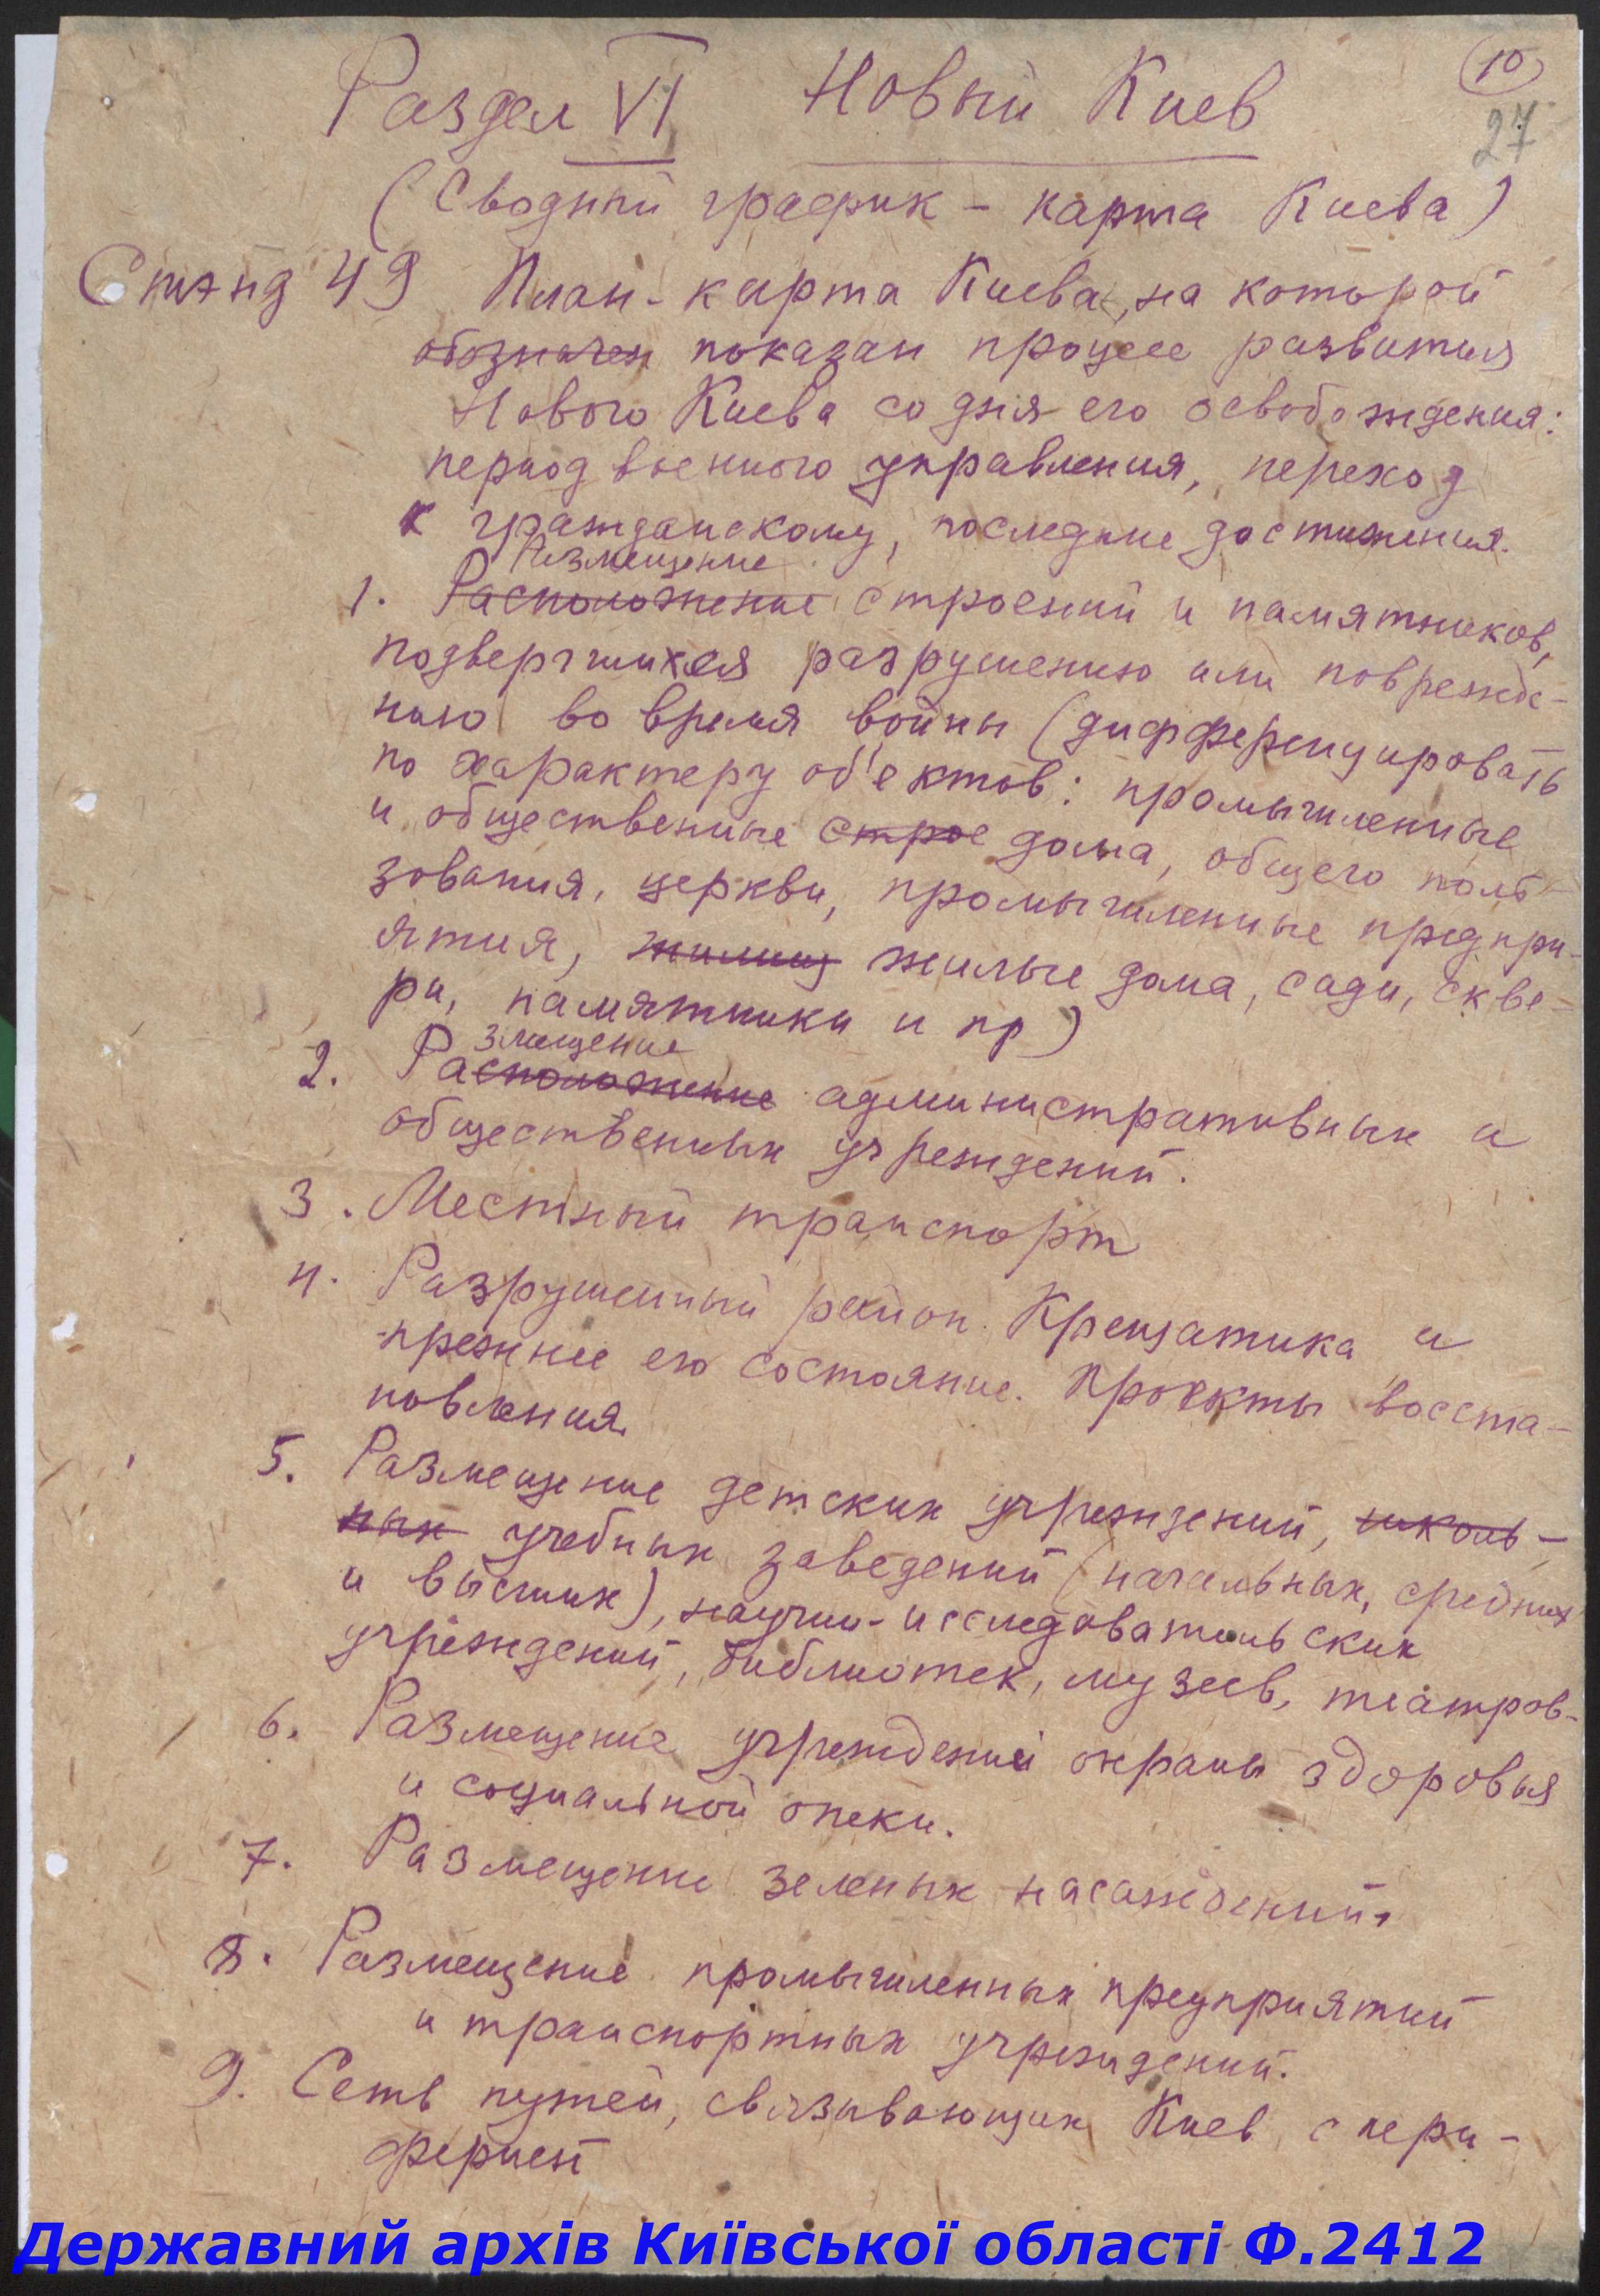 10
27
Раздел VI Новый Киев
(Сводный график - карта Киева)
Стэнд 49 План-карта Киева, на которой
обозначен показан процесс развития
Нового Киева со дня его освобождения:
период военного управления, переход
к гражданскому, последние достижения.
Размещение
1. Расположение строений и памятников,
подвергшихся разрушению или поврежде-
нию во время войны (дифференцировать
по характеру об'ектов: промышленные
и общественные строе дома, общего поль-
зования, церкви, промышленные предпри-
ятия, жилищ жилые дома, сады, скве-
ры, памятники и пр)
змещение
2. Расположение административных и
общественных учреждений.
3. Местный транспорт
4. Разрушенный район Крещатика и
прежнее его состояние. Проекты восста-
новления
5. Размещение детских учреждений, школь-
ных учебных заведений (начальных, средних
и высших), научно-исследовательских
учреждений, библиотек, музеев, театров.
6. Размещение учреждений охраны здоровья
и социальной опеки.
7. Размещение зеленых насаждений.
8. Размещение промышленных предприятий
и транспортных учреждений.
9. Сеть путей, связывающих Киев с пери-
ферией
Державний архів Київської області Ф.2412